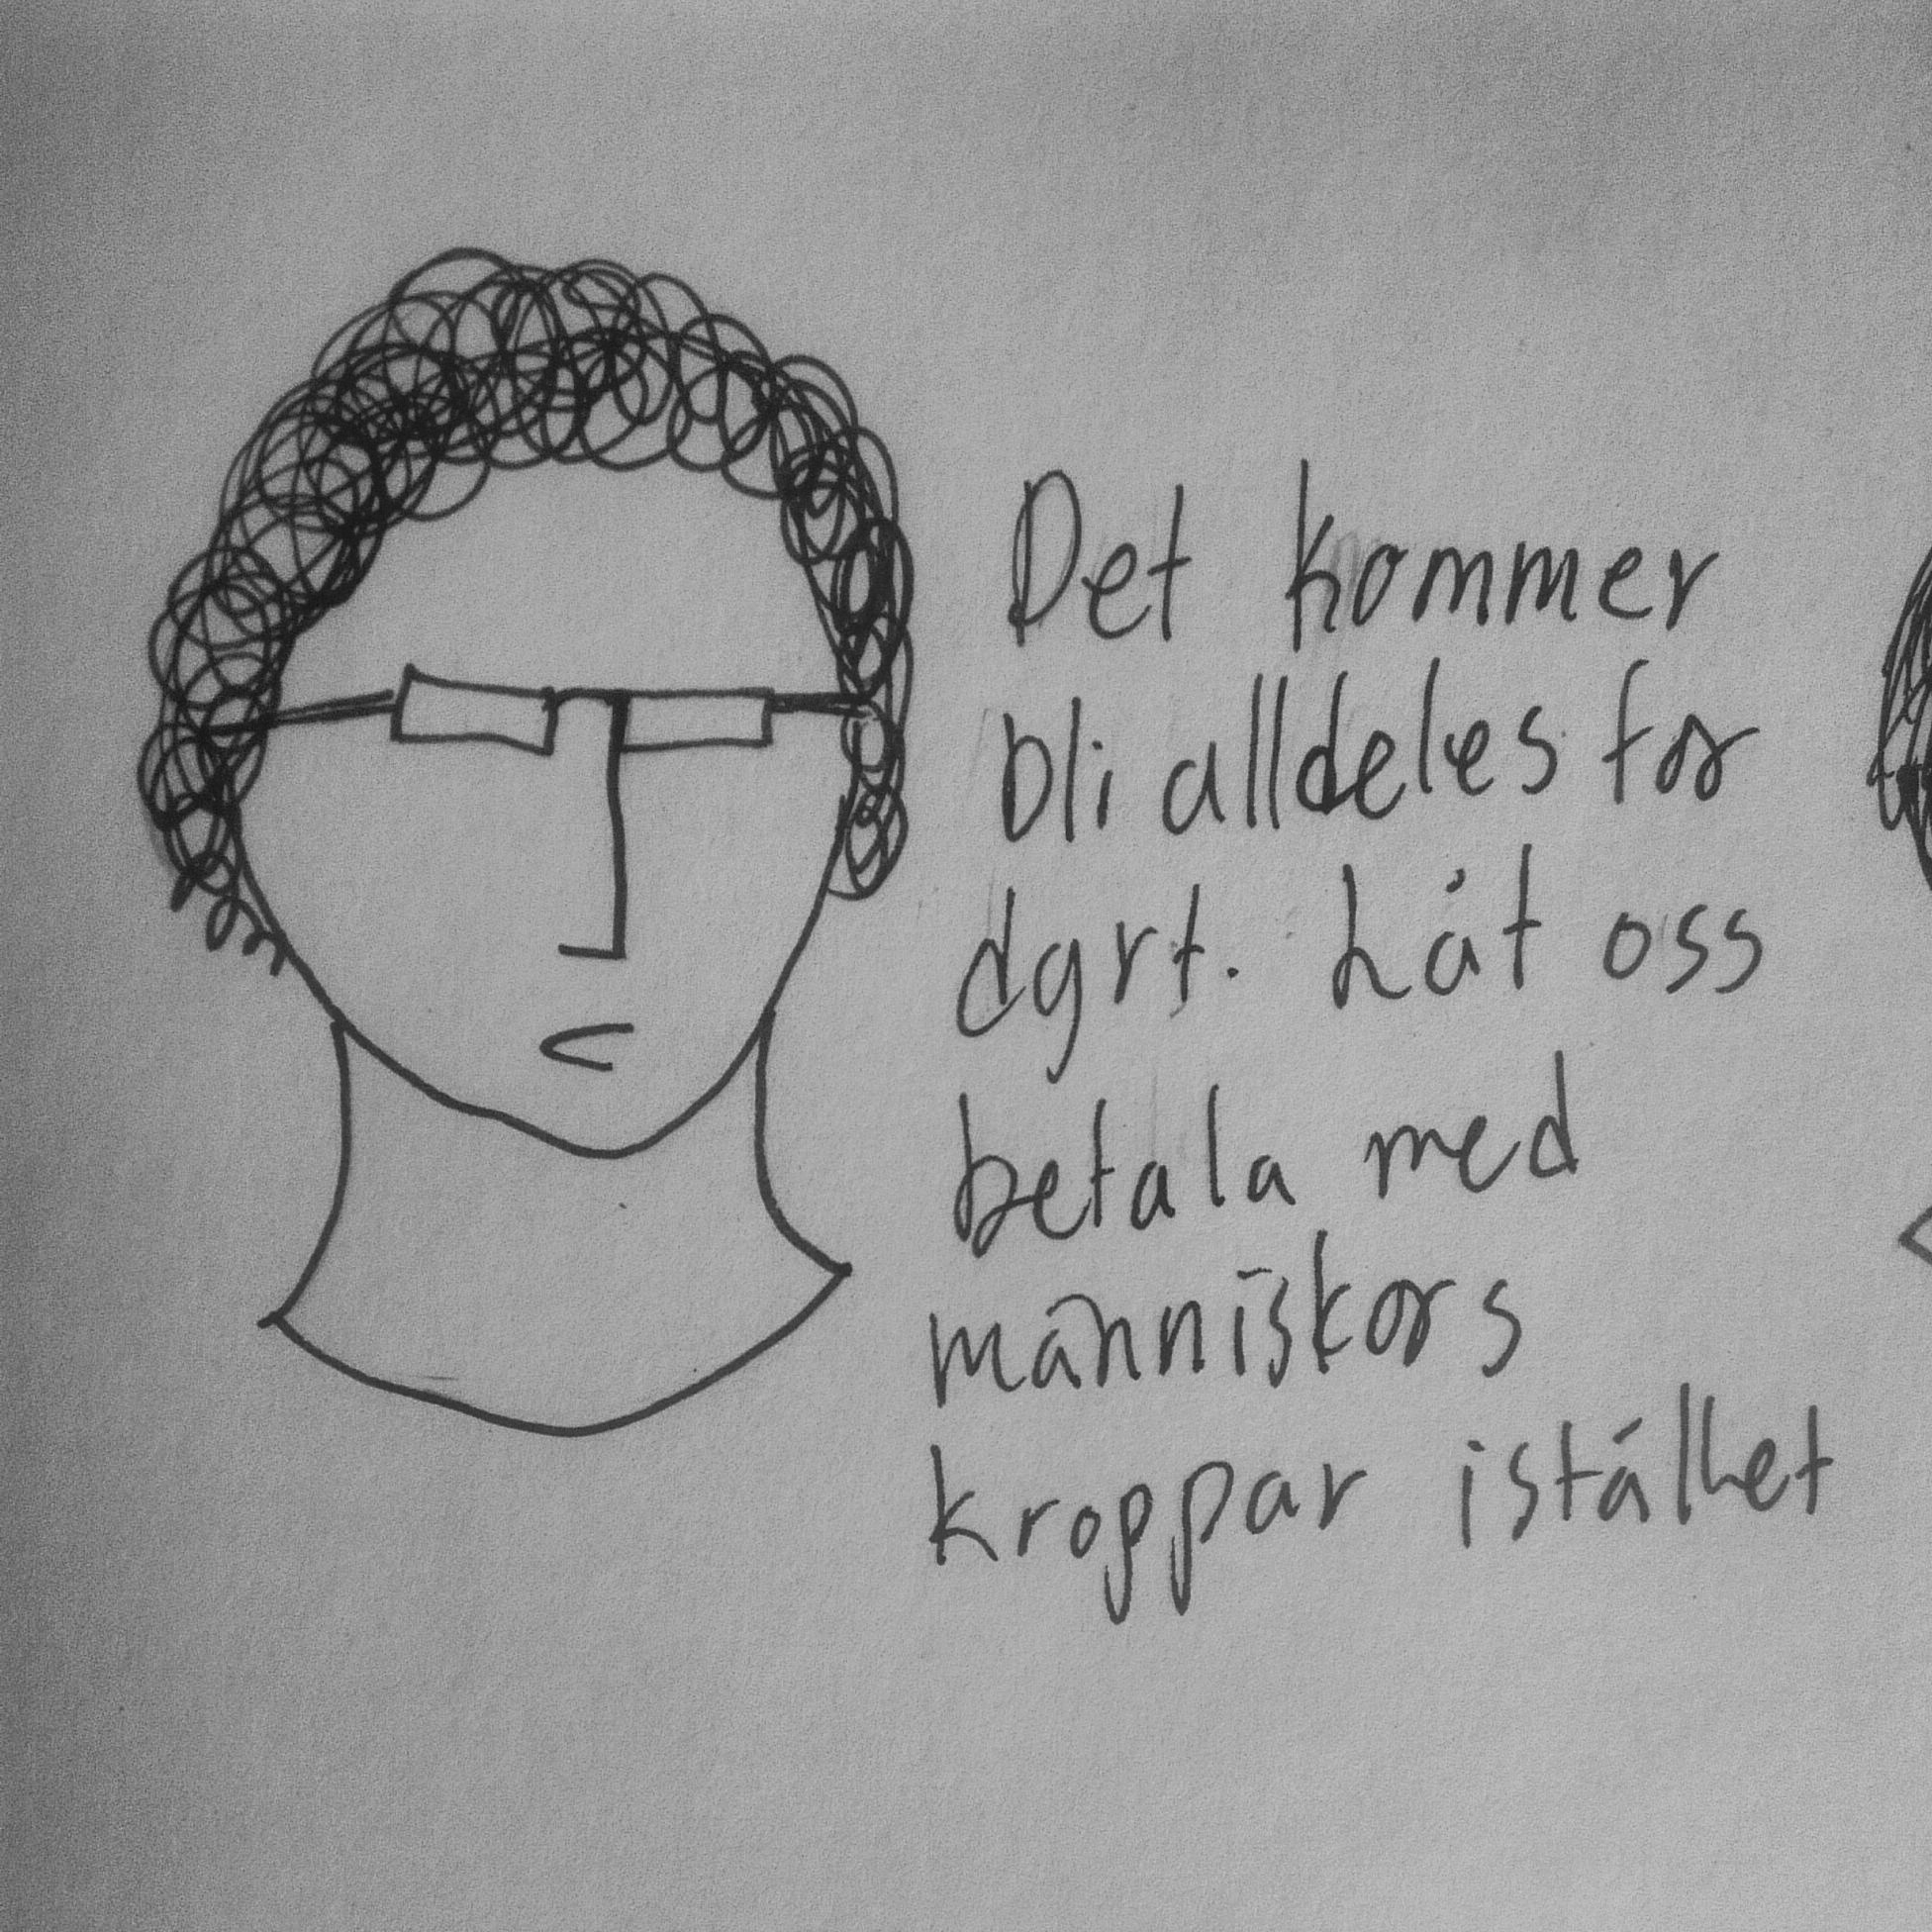 Det kommer
bli alldeles för
dyrt. Låt oss
betala med
människors
kroppar istället